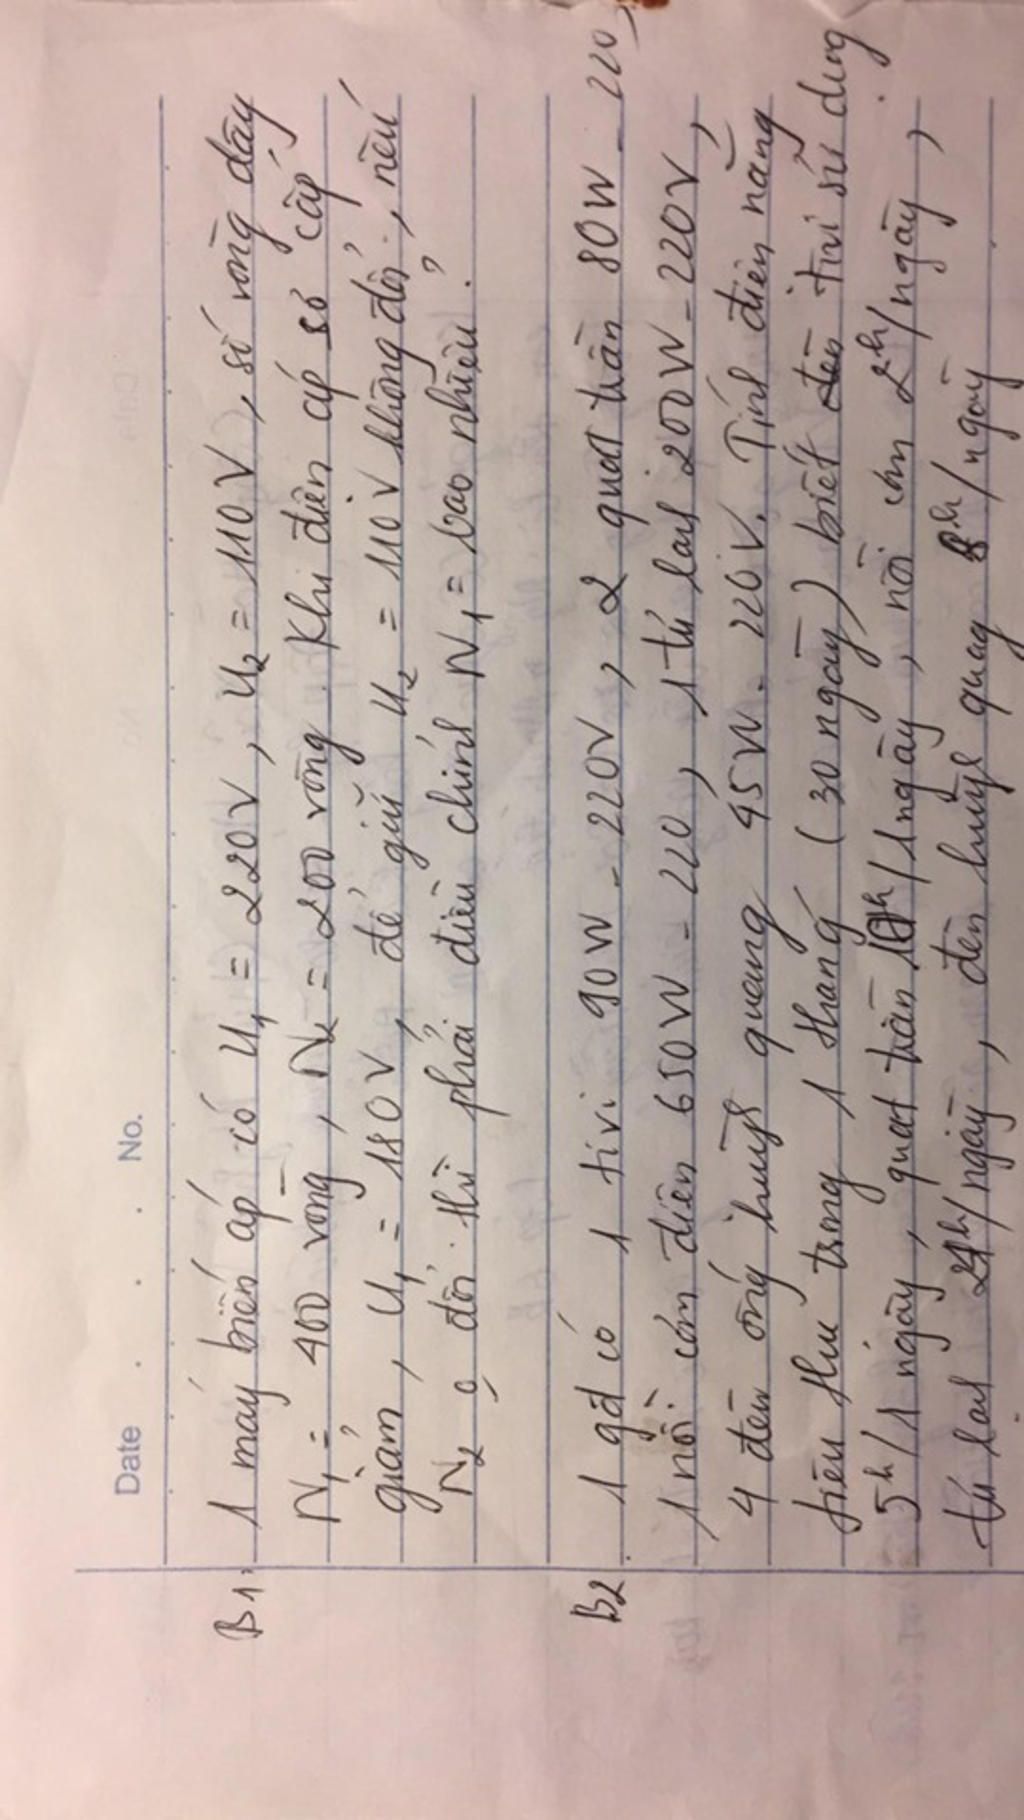 Date . . . No.
B1, 1 máy biến áp có U1 = 220V, U2 = 110V, số vòng dây
N1 = 400 vòng, N2 = 200 vòng. Khi điện áp sơ cấp
giảm, U1 = 180V, để giữ U2 = 110V không đổi, nếu
N2 ko đổi thì phải điều chỉnh N1 = bao nhiêu?
B2 1 gđ có 1 tivi 90W - 220V, 2 quạt trần 80W - 220,
1 nồi cơm điện 650W - 220, 1 tủ lạnh 200W - 220V,
4 đèn ống huỳnh quang 45W - 220V. Tính điện năng
tiêu thụ trong 1 tháng (30 ngày) biết tivi sử dụng
5h/1 ngày, quạt trần 10h/1 ngày, nồi cơm 2h/ngày,
tủ lạnh 24h/ngày, đèn huỳnh quang 8h/ngày